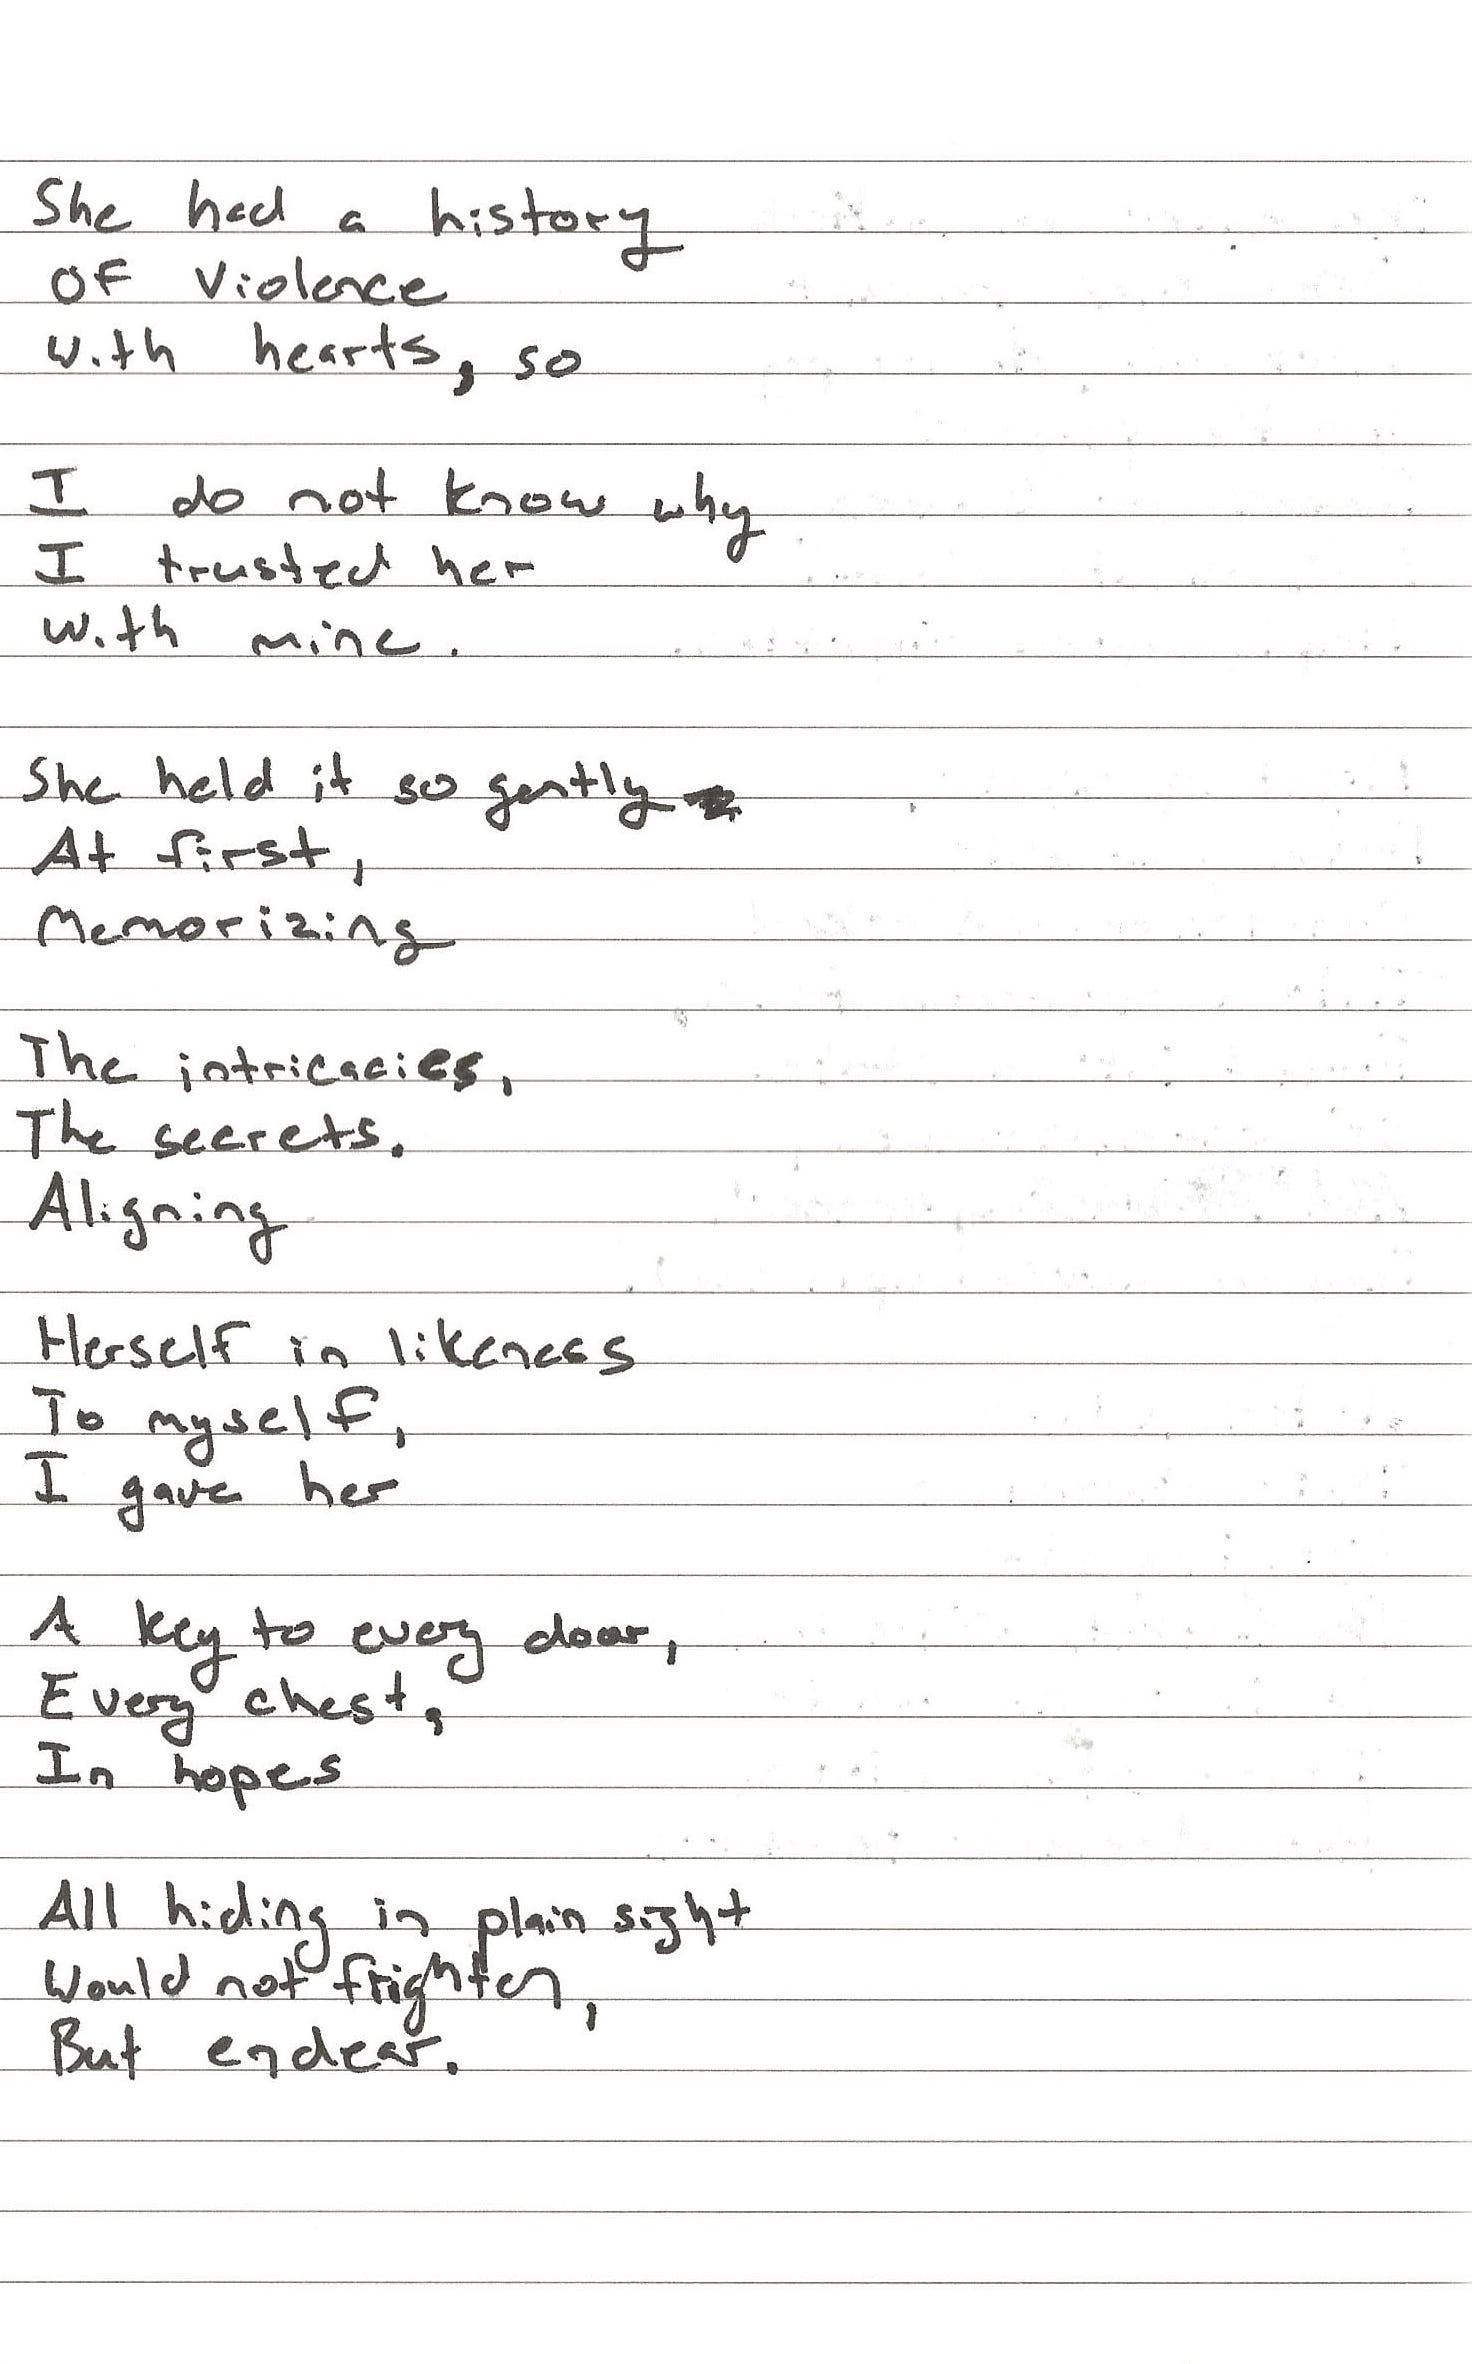 She had a history
of violence
with hearts, so
I do not know why
I trusted her
with mine.
She held it so gently
At first,
Memorizing
The intricacies,
The secrets.
Aligning
Herself in likeness
To myself,
I gave her
A key to every door,
Every chest,
In hopes
All hiding in plain sight
Would not frighten,
But endear.